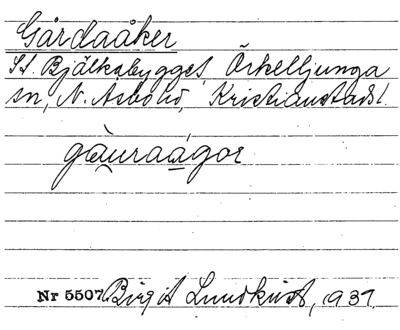 Gårdaåker
St. Bjälkabygget, Örkelljunga
sn, N. Åsbo hd, Kristianstads l.
gàuraágor
Nr 5507. Birgit Lundkvist, 1937.